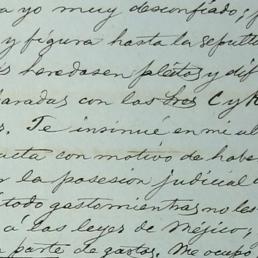 a yo muy desconfiado;
y figura hasta la sepult
heredasen pleitos y dif
paradas con los Sres C y
Te insinué en mi
acta con motivo de habe
la posesion judicial
todo gasto mientras no les
á las leyes de México;
parte de gastos. Me ocupo